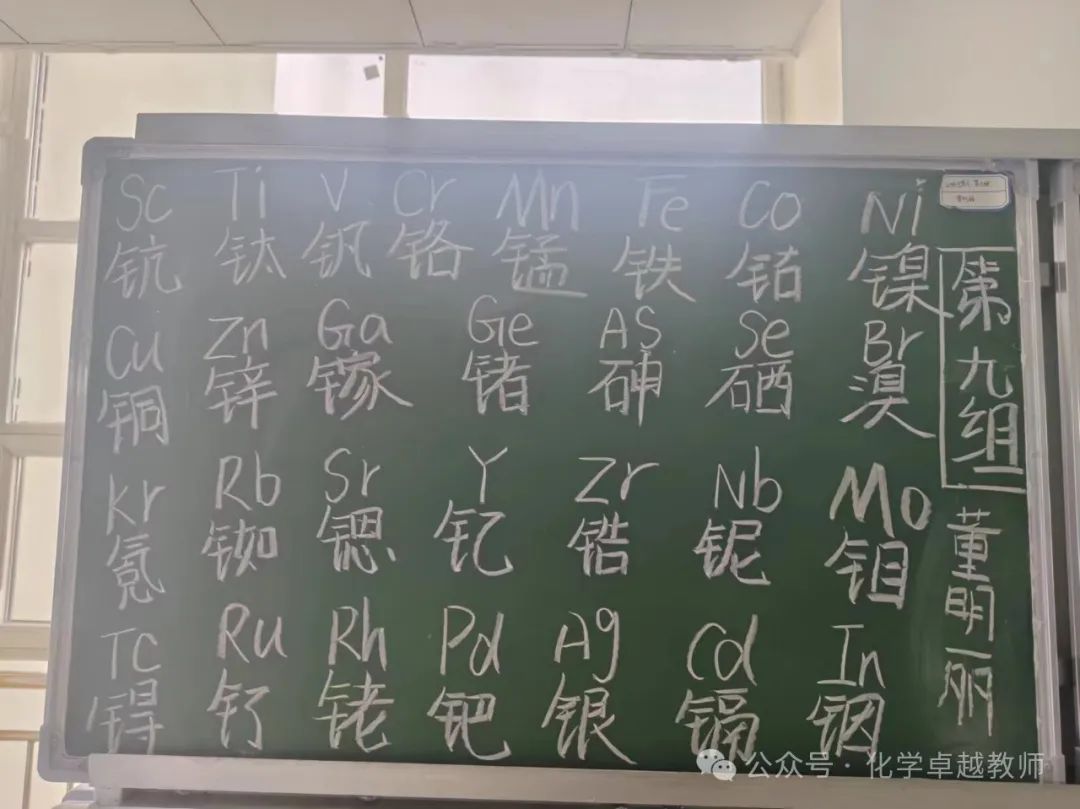 Sc Ti V Cr Mn Fe Co Ni
钪 钛 钒 铬 锰 铁 钴 镍
Cu Zn Ga Ge AS Se Br
铜 锌 镓 锗 砷 硒 溴
Kr Rb Sr Y Zr Nb Mo
氪 铷 锶 钇 锆 铌 钼
TC Ru Rh Pd Ag Cd In
锝 钌 铑 钯 银 镉 铟
第九组
董明丽
公众号·化学卓越教师